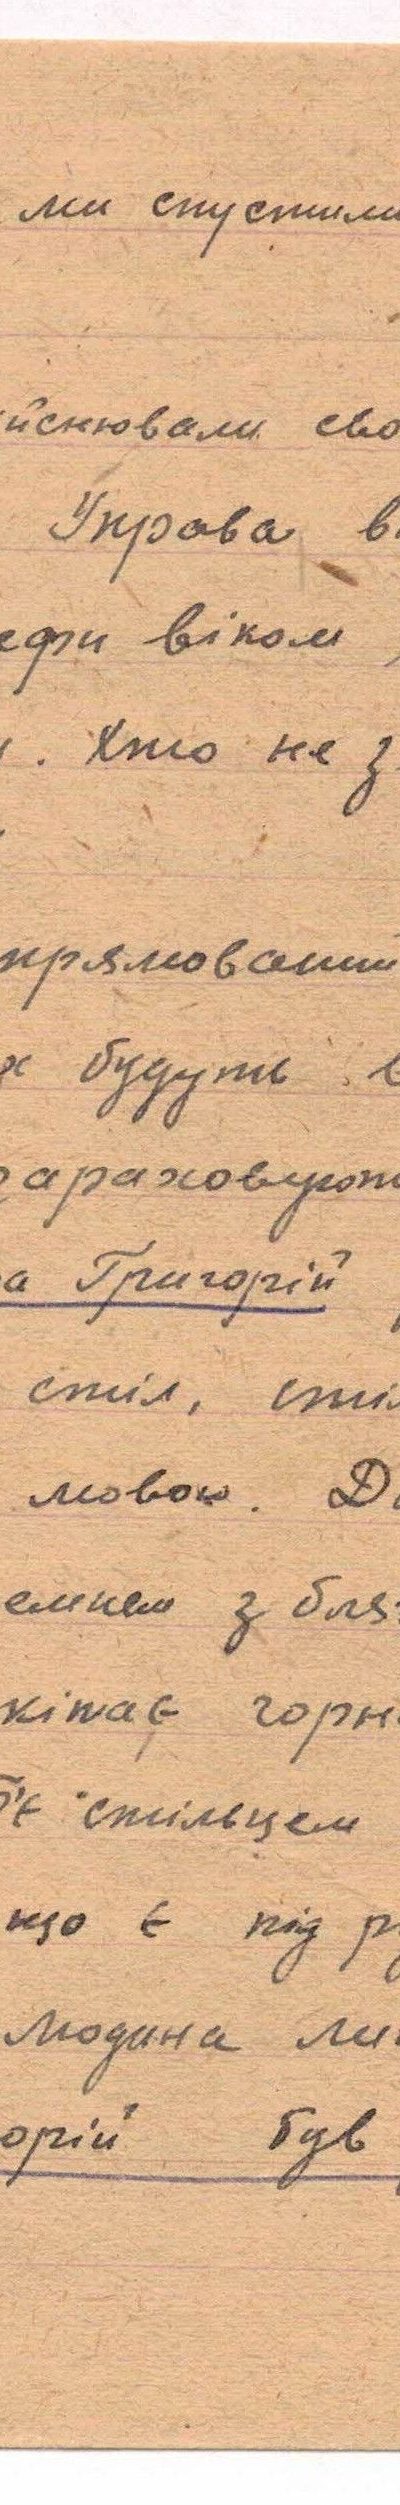 ми спустили
йснювали сво
Управа в
ефи віком,
. Хто не з
спрямований
х будуть в
зараховують
а Григорій
стіл, стіл
мовою. Д
емнем з бля
кіпає горн
б'є стільцем
що є під р
людина ли
орій був